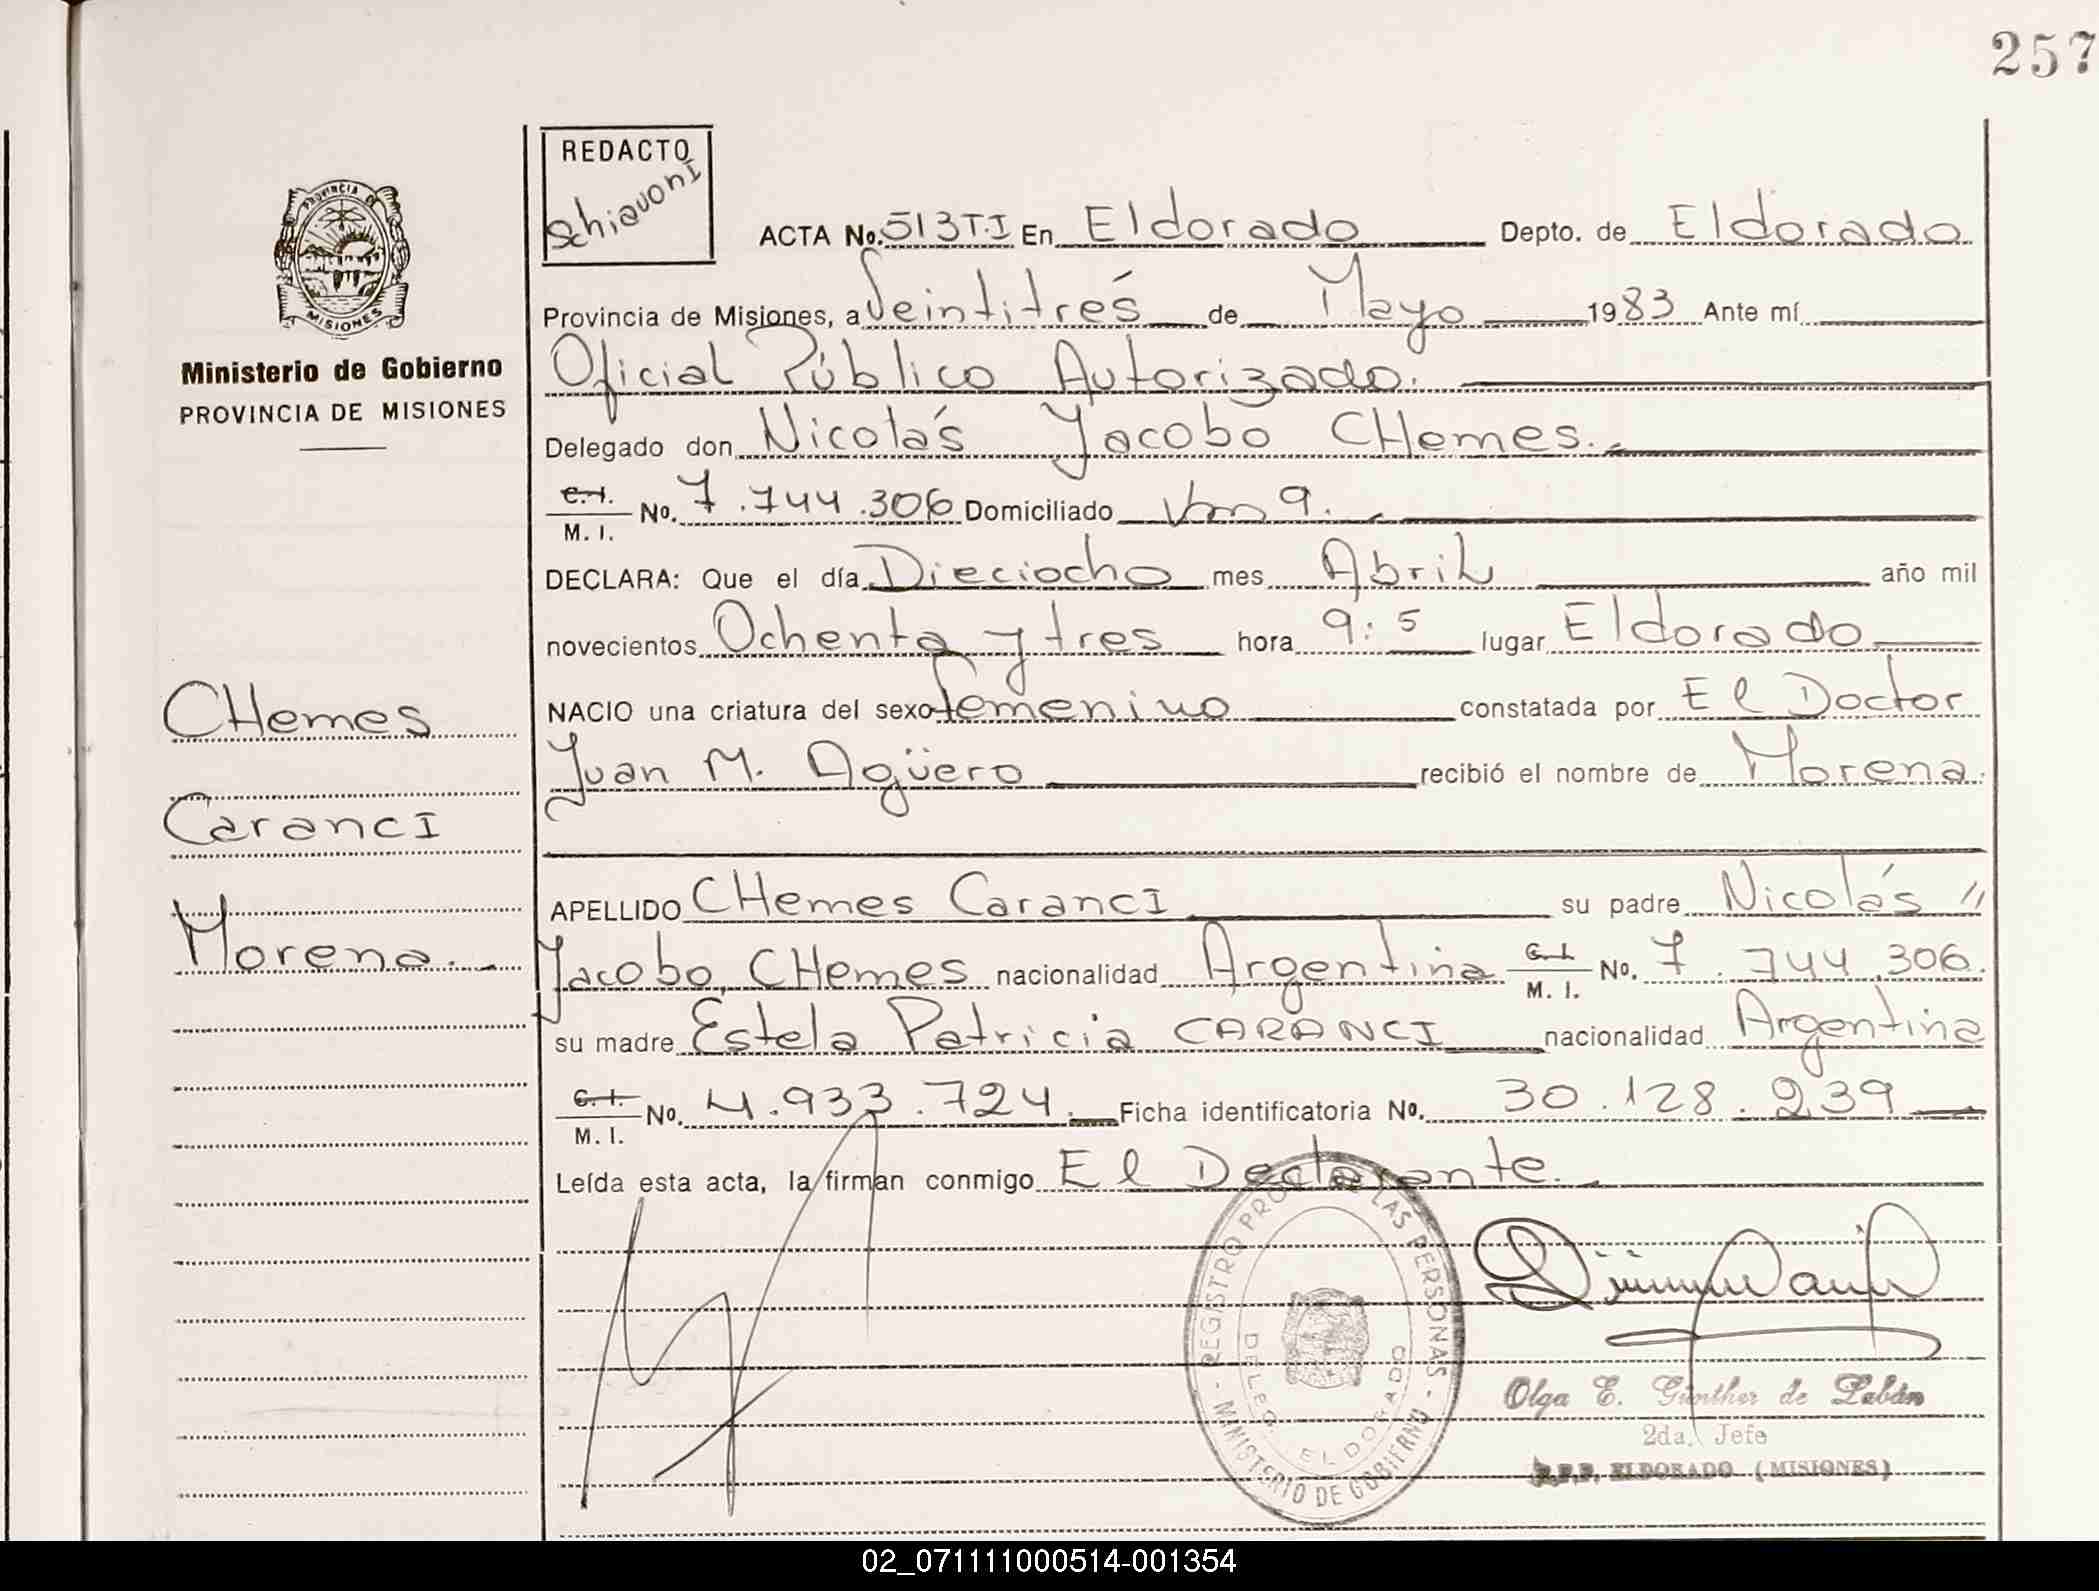 257
REDACTO
Schiavoni
PROVINCIA DE
MISIONES
Ministerio de Gobierno
PROVINCIA DE MISIONES
ACTA No. 513 T.I En Eldorado Depto. de Eldorado
Provincia de Misiones, a Veintitrés de Mayo 1983 Ante mí
Oficial Público Autorizado.
Delegado don Nicolás Jacobo CHemes.
C. I. / M. I. No. 7.744.306 Domiciliado Km 9.
DECLARA: Que el día Dieciocho mes Abril año mil
novecientos Ochenta y tres hora 9:5 lugar Eldorado
NACIO una criatura del sexo femenino constatada por El Doctor
Juan M. Agüero recibió el nombre de Morena.
CHemes
Caranci
Morena.
APELLIDO CHemes Caranci su padre Nicolás "
Jacobo, CHemes nacionalidad Argentina C. I. / M. I. No. 7.744.306.
su madre Estela Patricia CARANCI nacionalidad Argentina
C. I. / M. I. No. 4.933.724. Ficha identificatoria No. 30.128.239
Leída esta acta, la firman conmigo El Declarante.
REGISTRO PROV. DE LAS PERSONAS
DELEG. ELDORADO
- MINISTERIO DE GOBIERNO -
Olga E. Günther de Labán
2da. Jefe
R.P.P. ELDORADO (MISIONES)
02_071111000514-001354